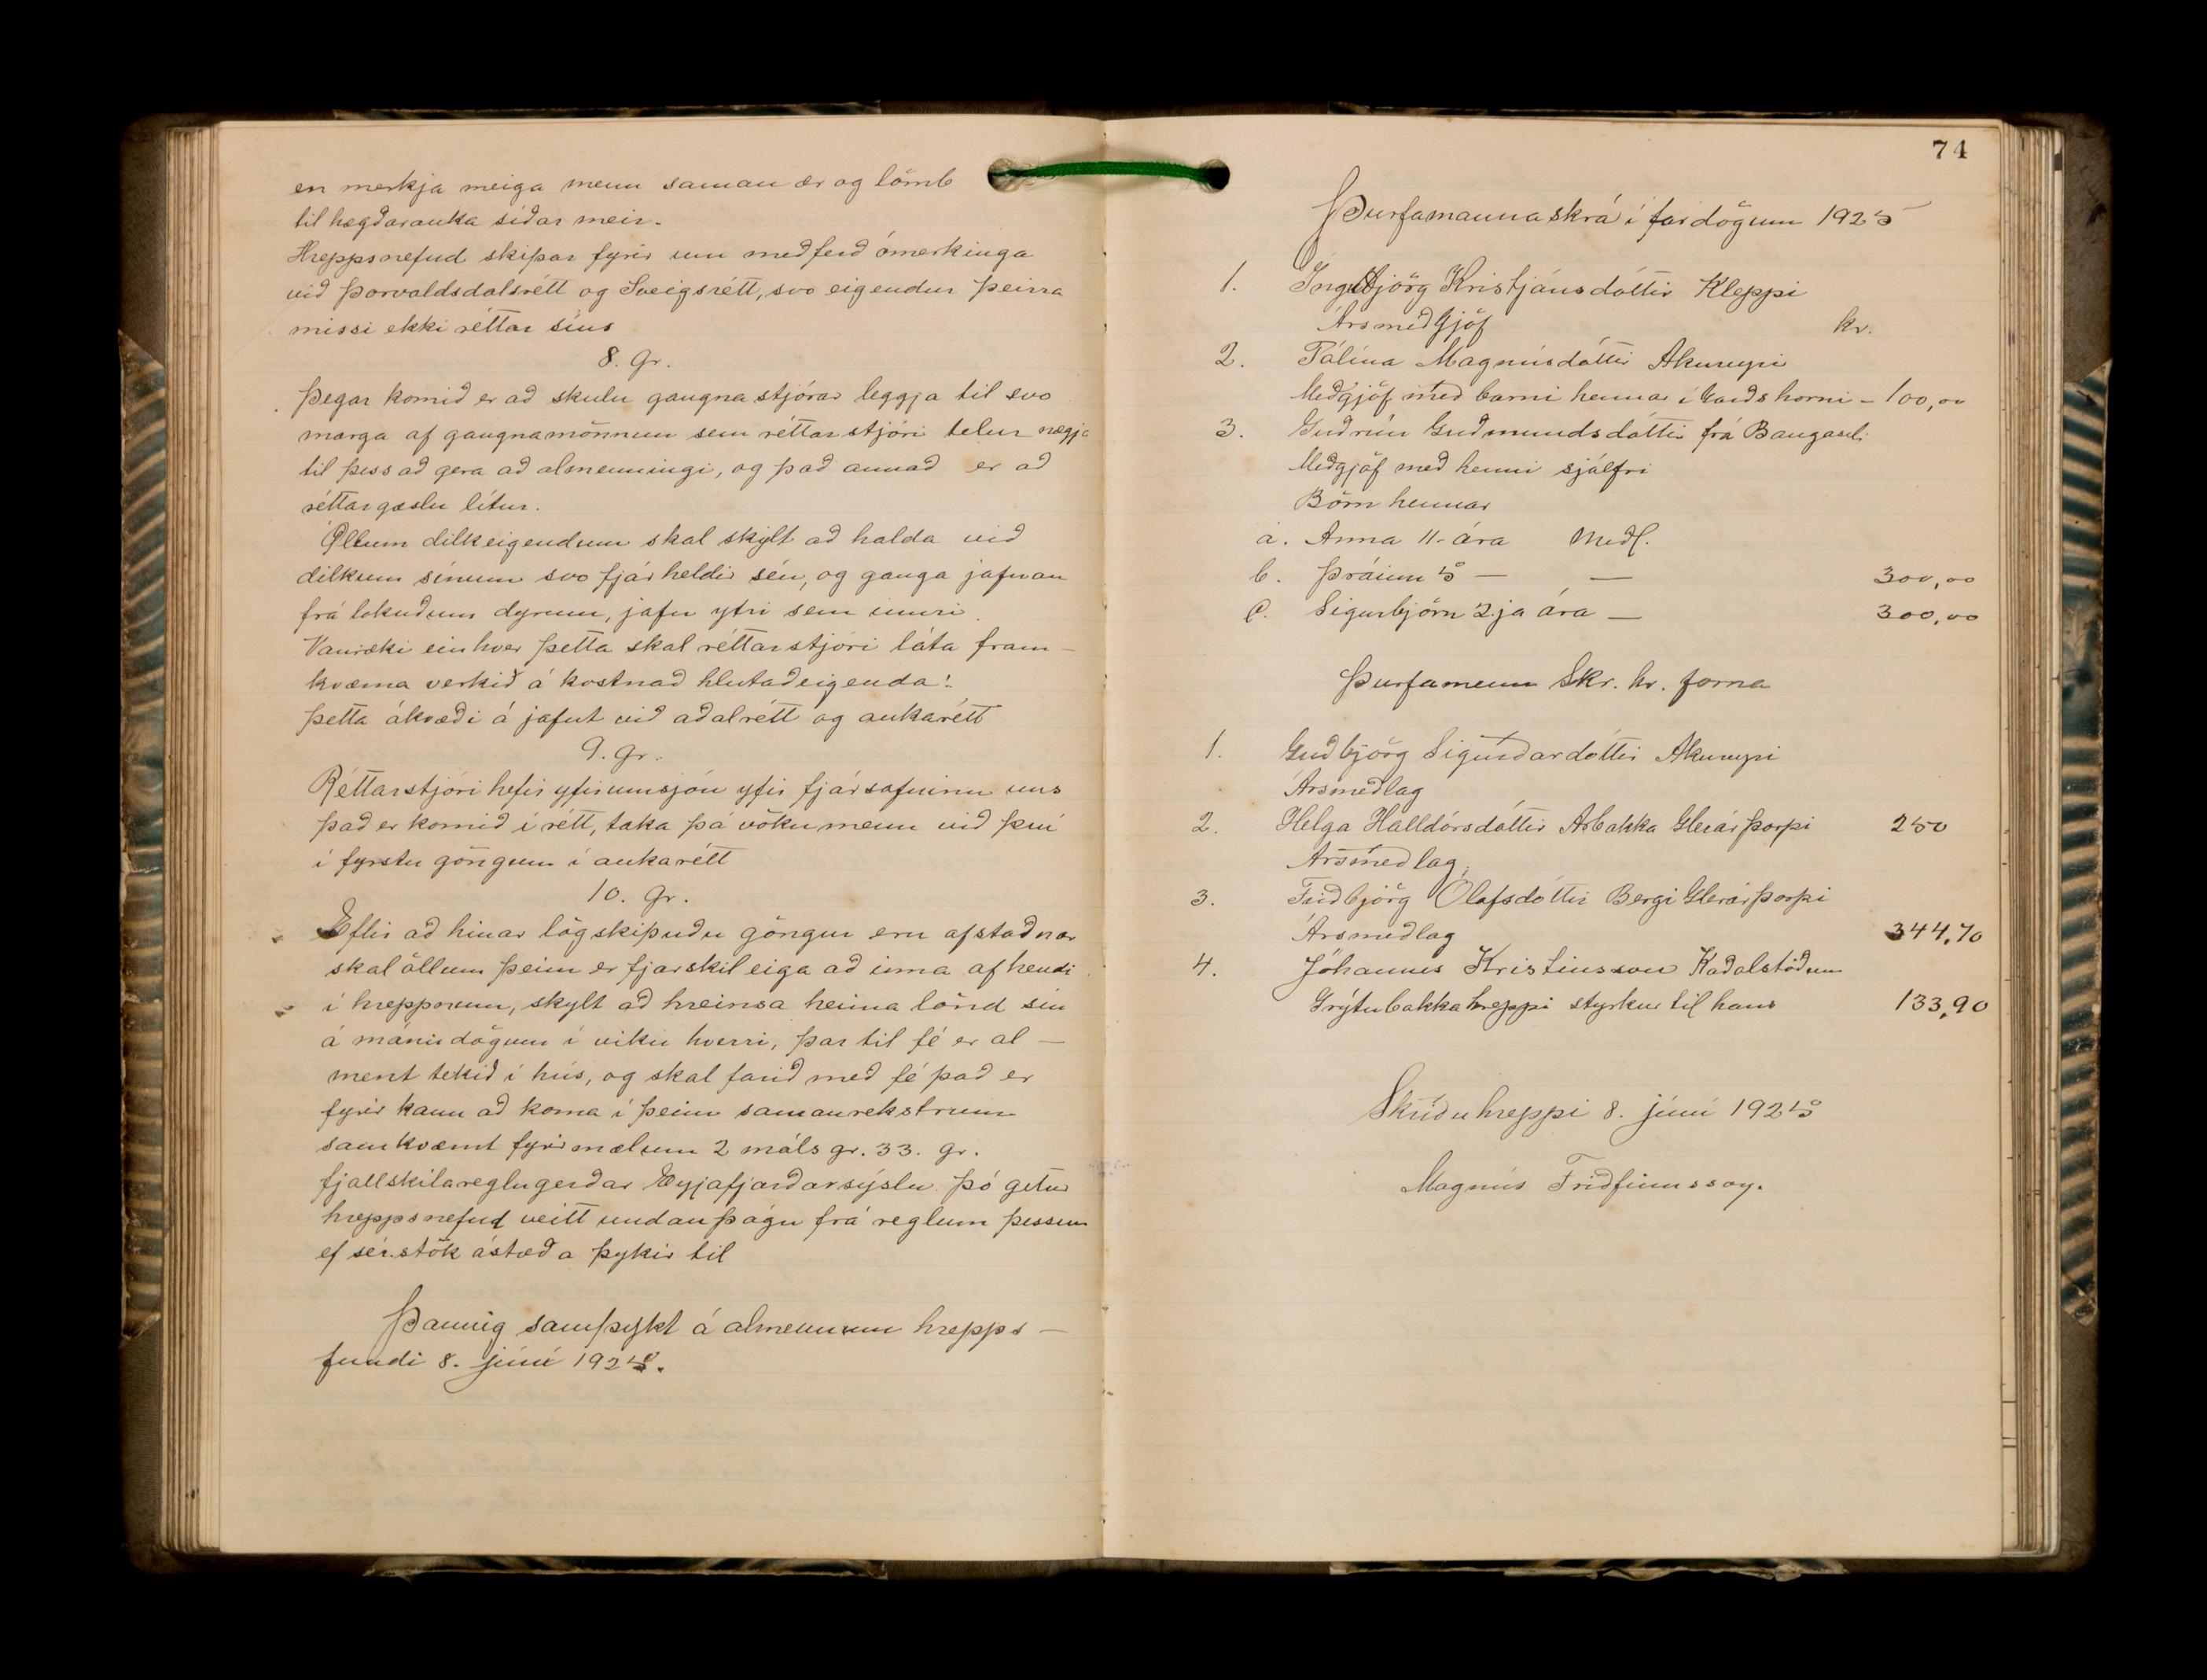 en merkja meiga menn saman ær og lömb
til hægðarauka síðar meir.
Hreppsnefnd skipar fyrir um meðferð ómerkinga
við Þorvaldsdalsrétt og Sveigsrétt, svo eigendur þeirra
missi ekki réttar síns
8. Gr.
Þegar komið er að skulu gangna stjórar leggja til svo
marga af gangnamönnum sem réttarstjóri telur nægja
til þess að gera að almenningi, og það annað er að
réttargæslu lítur.
Öllum dilkeigendum skal skylt að halda við
dilkum sínum svo fjárheldir séu, og ganga jafnan
frá lokuðum dyrum, jafn ytri sem innri.
Vanræki einhver þetta skal réttarstjóri láta fram-
kvæma verkið á kostnað hlutaðeigenda.
Þetta ákvæði á jafnt við aðalrétt og aukarétt
9. gr.
Réttarstjóri hefir yfirumsjón yfir fjársafninu uns
það er komið í rétt, taka þá vökumenn við því
í fyrstu göngum í aukarétt
10. Gr.
Eftir að hinar lögskipuðu göngur eru afstaðnar
skal öllum þeim er fjarskil eiga að inna af hendi
í hreppnum, skylt að hreinsa heima lönd sín
á mánudögum í viku hverri, þar til fé er al-
ment tekið í hús, og skal farið með fé það er
fyrir kann að koma í þeim samanrekstrum
samkvæmt fyrirmælum 2 máls gr. 33. gr.
fjallskilareglugerðar Eyjafjarðarsýslu. Þó getur
hreppsnefnd veitt undanþágu frá reglum þessum
ef sérstök ástæða þykir til
Þannig samþykt á almennum hrepps-
fundi 8. júní 1925.
74
Þurfamannaskrá í fardögum 1925
1. Ingibjörg Kristjánsdóttir Kleppi
Ársmeðgjöf kr.
2. Pálína Magnúsdóttir Akureyri
Meðgjöf með barni hennar í Garðshorni - 100,00
3. Guðrún Guðmundsdóttir frá Baugaseli
Meðgjöf með henni sjálfri
Börn hennar
a. Anna 11-ára Meðl.
b. Þráinn 5 — — 300,00
c. Sigurbjörn 2ja ára — 300,00
Þurfamenn Skr. hr. forna
1. Guðbjörg Sigurðardóttir Akureyri
Ársmeðlag
2. Helga Halldórsdóttir Árbakka Glerárþorpi 250
Ársmeðlag
3. Friðbjörg Ólafsdóttir Bergi Glerárþorpi
Ársmeðlag 344,70
4. Jóhannes Kristinsson Kaðalstöðum
Grýtubakkahreppi styrkur til hans 133,90
Skriðuhreppi 8. júní 1925
Magnús Friðfinnsson.